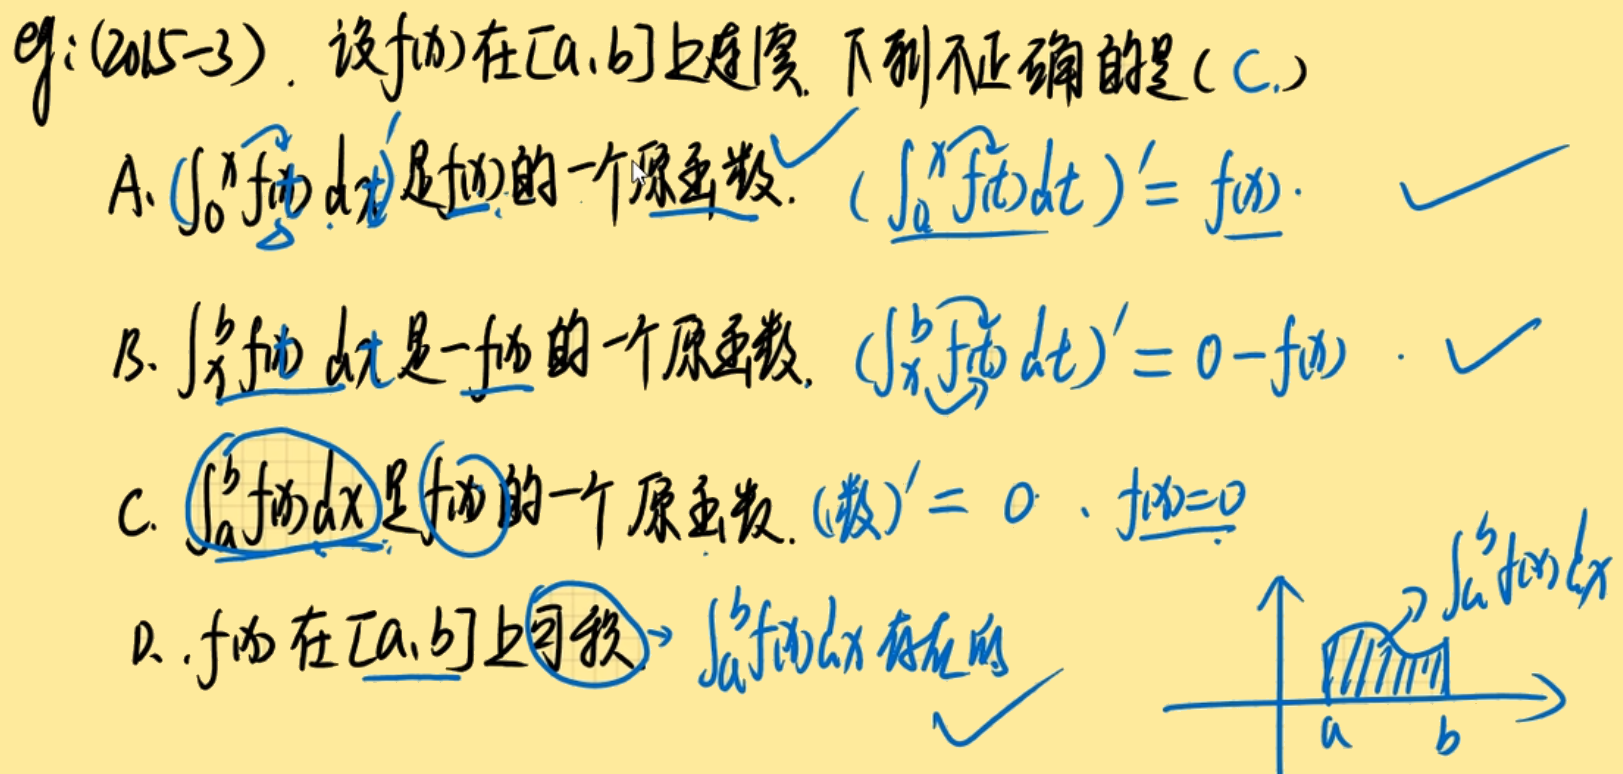 eg:(2015-3). 设f(x)在[a,b]上连续.下列不正确的是(C.)
A.(∫₀ˣf(t)dt)′是f(x)的一个原函数. (∫ₐˣf(t)dt)′=f(x).
B.∫ₓᵇf(t)dt是-f(x)的一个原函数. (∫ₓᵇf(t)dt)′=0-f(x).
C.∫ₐᵇf(x)dx是f(x)的一个原函数.(数)′=0、f(x)=0
∫ₐᵇf(x)dx
D.f(x)在[a,b]上可积→∫ₐᵇf(x)dx存在的
a b